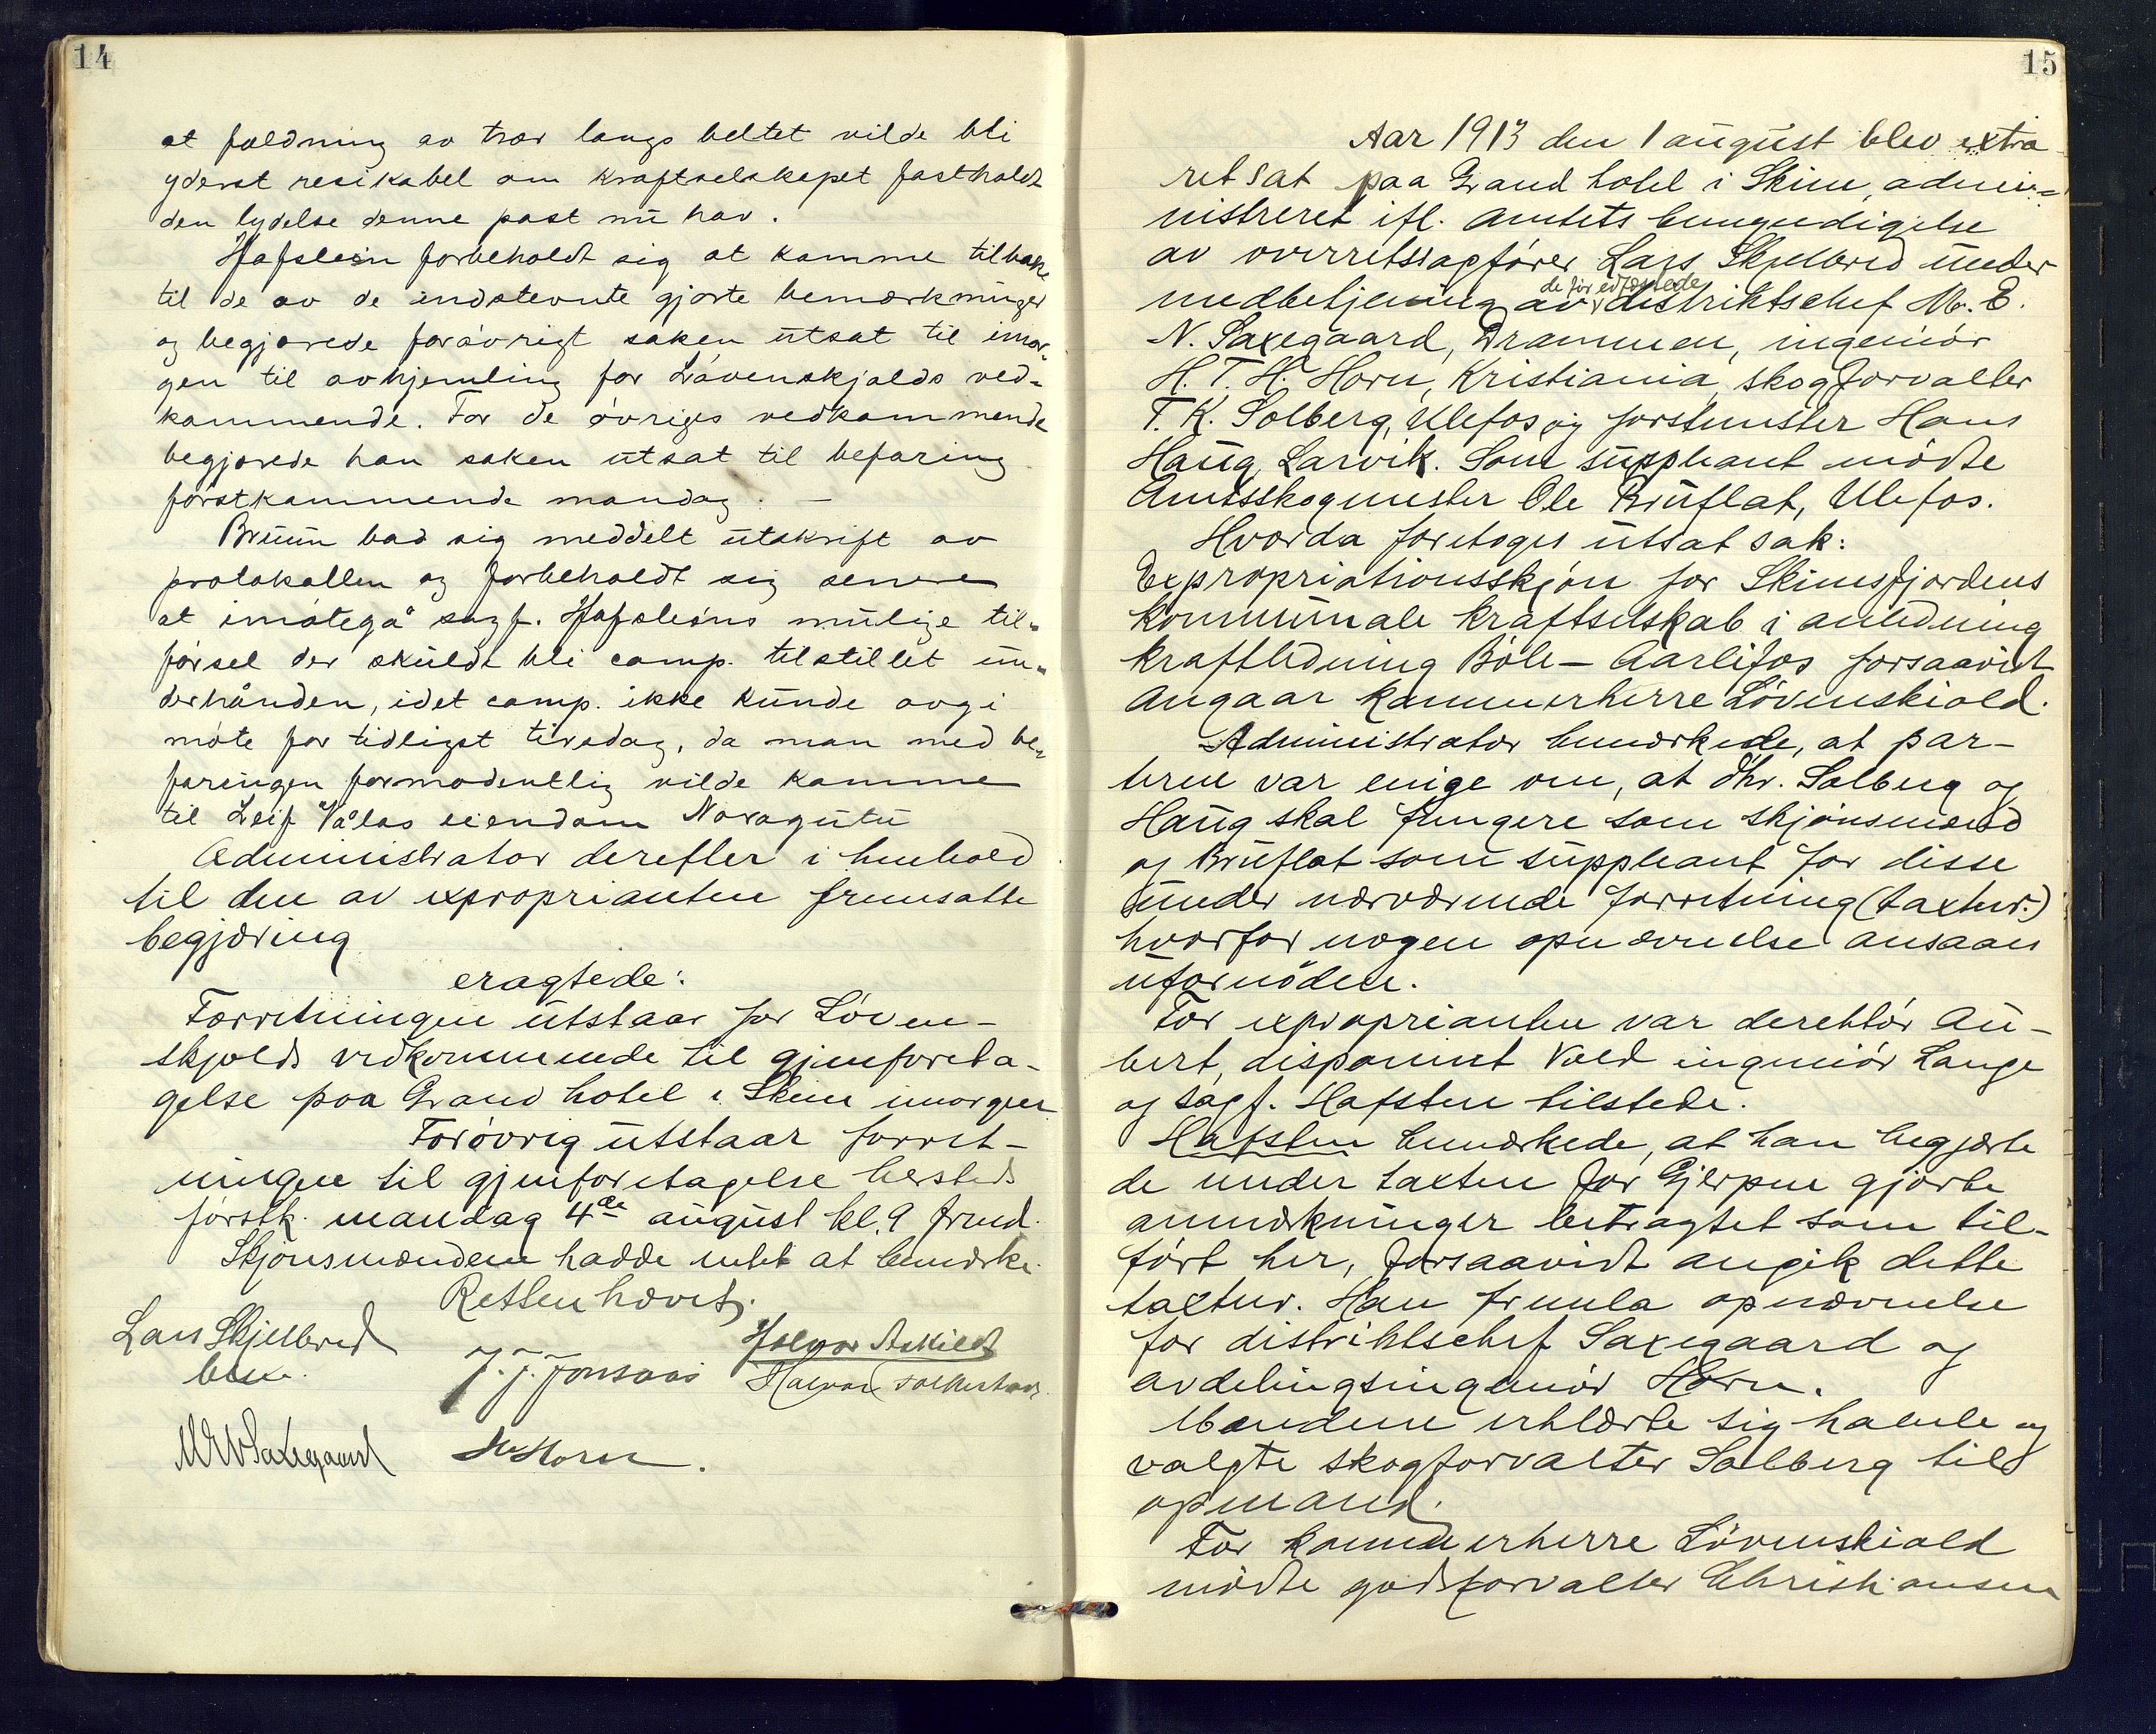 14
at fældning av trær langs beltet vilde bli
yderst resikabel om kraftselskapet fastholdt
den lydelse denne post nu har.
Hafsteen forbeholdt sig at komme tilbake
til de av de indstevnte gjorte bemærkninger
og begjærede forøvrigt saken utsat til imor-
gen til avhjemling for Løvenskjolds ved-
kommende. For de øvriges vedkommende
begjærede han saken utsat til befaring
førstkommende mandag. —
Bruun bad sig meddelt utskrift av
protokollen og forbeholdt sig senere
at imøtegå sagf. Hafsteens mulige til-
førsel der skulde bli comp. tilstillet un-
derhånden, idet comp. ikke kunde avgi
møte før tidligst tirsdag, da man med be-
faringen formodentlig vilde komme
til Leif Vålas eiendom Noragutu
Administrator derefter i henhold
til den av exproprianten fremsatte
begjæring
eragtede:
Forretningen utstaar for Løven-
skjolds vedkommende til gjenforeta-
gelse paa Grand hotel i Skien imorgen
Forøvrig utstaar forret-
ningen til gjenforetagelse hersteds
førstk. mandag 4de august kl. 9 frmd.
Skjønsmændene hadde intet at bemærke.
Retten hævet.
Lars Skjelbred
J. J. Jonsaas
Halvor
MENSaxegaard
Horn.
15
Aar 1913 den 1 august blev extra
ret sat paa Grand hotel i Skien, admi-
nistreret ifl. amtets bemyndigelse
av overretssagfører Lars Skjelbred under
medbetjening av de før edfæstede distriktschef M. E.
N. Saxegaard, Drammen, ingeniør
H. T. H. Horn, Kristiania, skogforvalter
T. K. Solberg, Ulefos og forstmester Hans
Haug, Larvik. Som suppleant mødte
Amtsskogmester Ole Bruflat, Ulefos.
Hvorda foretoges utsat sak:
Expropriationsskjøn for Skiensfjordens
kommunale kraftselskab i anledning
kraftledning Böle – Aarlifos forsaavidt
angaar kammerherre Løvenskiold.
Administrator bemærkede, at par-
terne var enige om, at dhr. Solberg og
Haug skal fungere som skjønsmænd
og Bruflat som suppleant for disse
under nærværende forretning (taxtnr.)
hvorfor nogen opnævnelse ansaaes
ufornøden.
For exproprianten var derektør Au-
bert, disponent Vold ingeniør Lange
og sagf. Hafsten tilstede.
Hafsten bemærkede, at han begjærte
de under taxten for Gjerpen gjorte
anmærkninger betragtet som til-
ført her, forsaavidt angik dette
taxtnr. Han fremla opnævnelse
for distriktschef Saxegaard og
avdelingsingeniør Horn.
Mændene erklærte sig habile og
valgte skogforvalter Solberg til
opmand.
For kammerherre Løvenskiold
mødte godsforvalter Christiansen